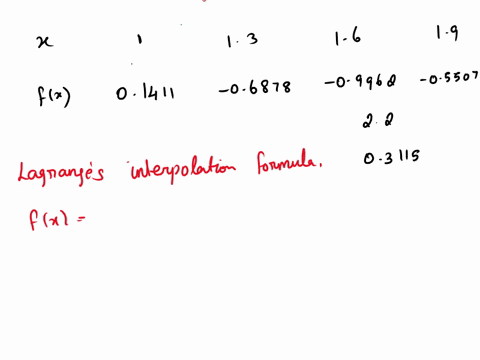 x 1 1.3 1.6 1.9
f(x) 0.1411 -0.6878 -0.9962 -0.5507
2.2
0.3115
Lagrange's interpolation formula.
f(x) =